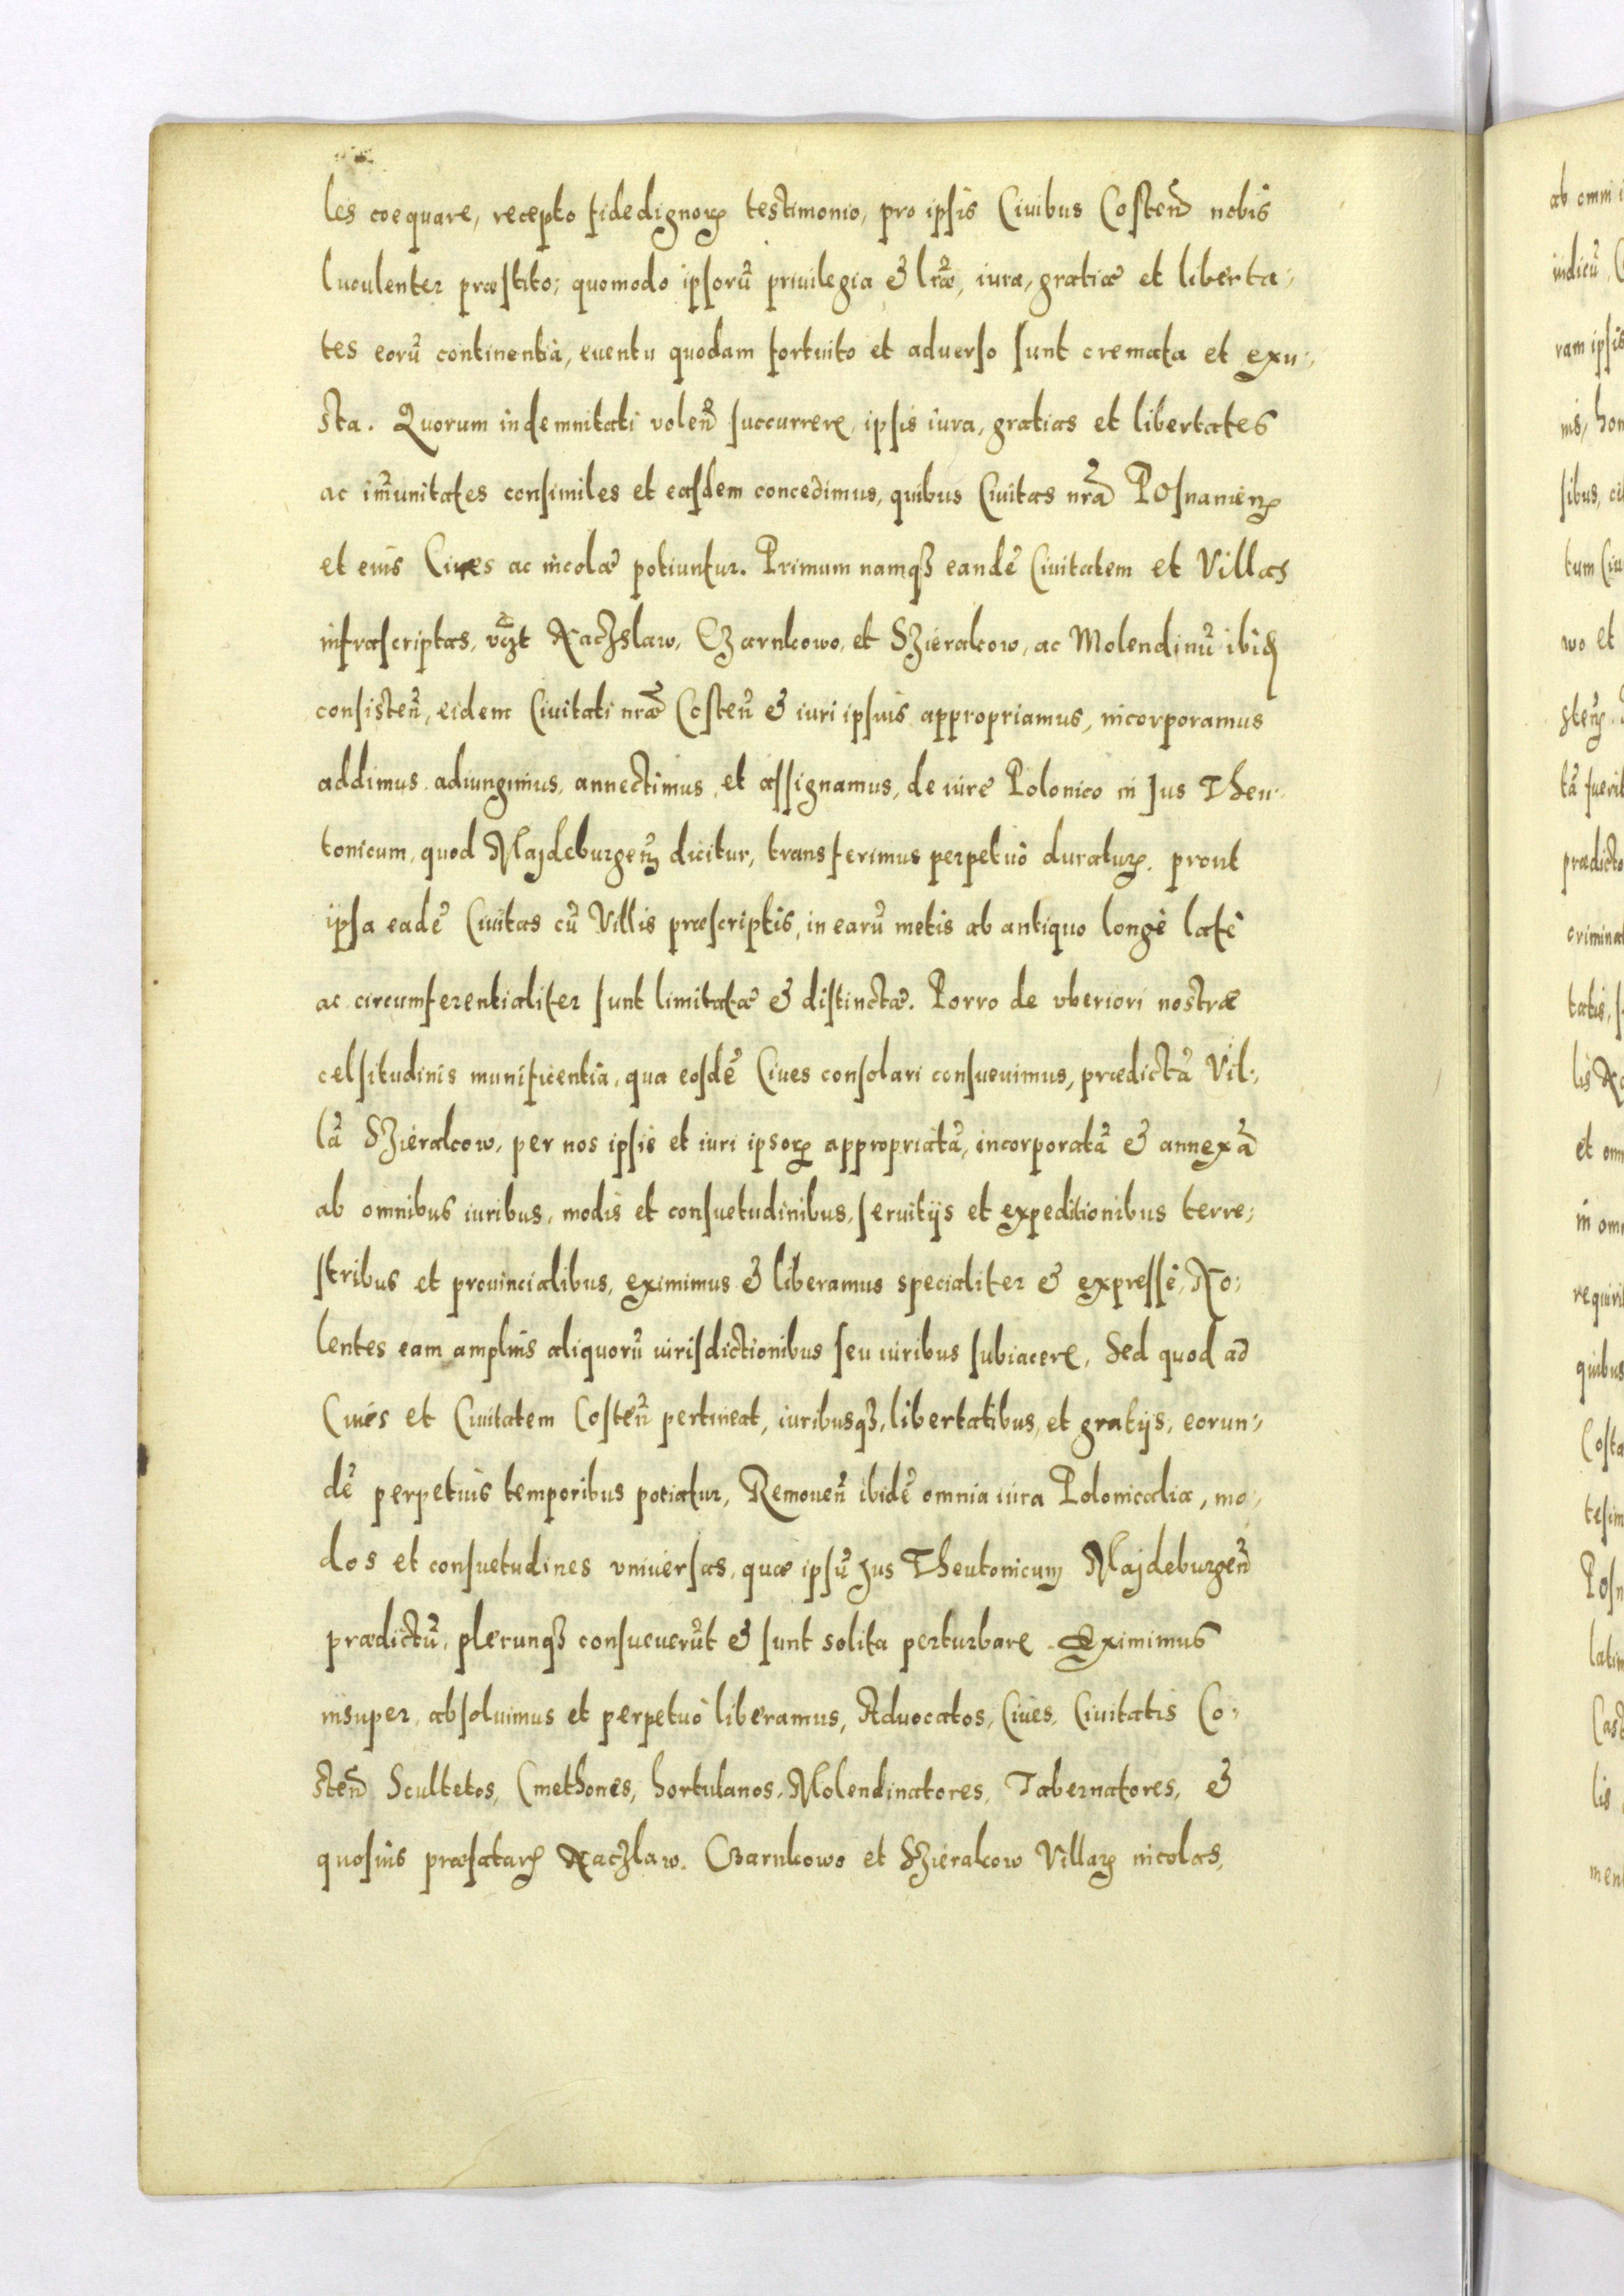 les coequare, recepto fidedignoꝝ testimonio, pro ipsis Ciuibus Costen̄ nobis
luculenter præstito; quomodo ipsorū priuilegia & lr̄æ, iura, gratiæ et liberta:
tes eorū continentia, euentu quodam fortuito et aduerso sunt cremata et exu:
sta. Quorum indemnitati volen̄ succurrere, ipsis iura, gratias et libertates
ac im̄unitates consimiles et easdem concedimus, quibus Ciuitas nr̄a Posnanien̄
et eius Ciues ac incolæ potiuntur. Primum namqȝ eandē Ciuitatem et Villas
infrascriptas, vꝫt Naczslaw, Czarnkowo, et Szierakow, ac Molendinū ibiđ
consisten̄, eidem Ciuitati nr̄æ Costen̄ & iuri ipsius appropriamus, incorporamus
addimus, adiungimus, annectimus, et assignamus, de iure Polonico in Jus Theu:
tonicum, quod Majdeburgen̄ dicitur, transferimus perpetuò duraturꝝ. prout
ipsa eadē Ciuitas cū Villis præscriptis, in earū metis ab antiquo longè latè
ac circumferentialiter sunt limitatæ & distinctæ. Porro de vberiori nostræ
celsitudinis munificentia, qua eosdē Ciues consolari consueuimus, prædictā Vil:
lā Szierakow, per nos ipsis et iuri ipsoꝝ appropriatā, incorporatā & annexā
ab omnibus iuribus, modis et consuetudinibus, seruitijs et expeditionibus terre:
stribus et prouincialibus, eximimus & liberamus specialiter & expressè, No:
lentes eam amplius aliquorū iurisdictionibus seu iuribus subiacere, Sed quod ad
Ciues et Ciuitatem Costen̄ pertineat, iuribusqȝ, libertatibus, et gratijs, eorun:
dē perpetuis temporibus potiatur, Remouen̄ ibidē omnia iura Polonicalia, mo:
dos et consuetudines vniuersas, quæ ipsū Jus Theutonicum Majdeburgen̄
prædictū, plerunqȝ consueuerūt & sunt solita perturbare. Eximimus
insuper, absoluimus et perpetuò liberamus, Aduocatos, Ciues, Ciuitatis Co:
sten̄ Scultetos, Cmethones, hortulanos, Molendinatores, Tabernatores, &
quosuis præfataꝝ Naczlaw, Czarnkowo et Szierakow Villaꝝ incolas,